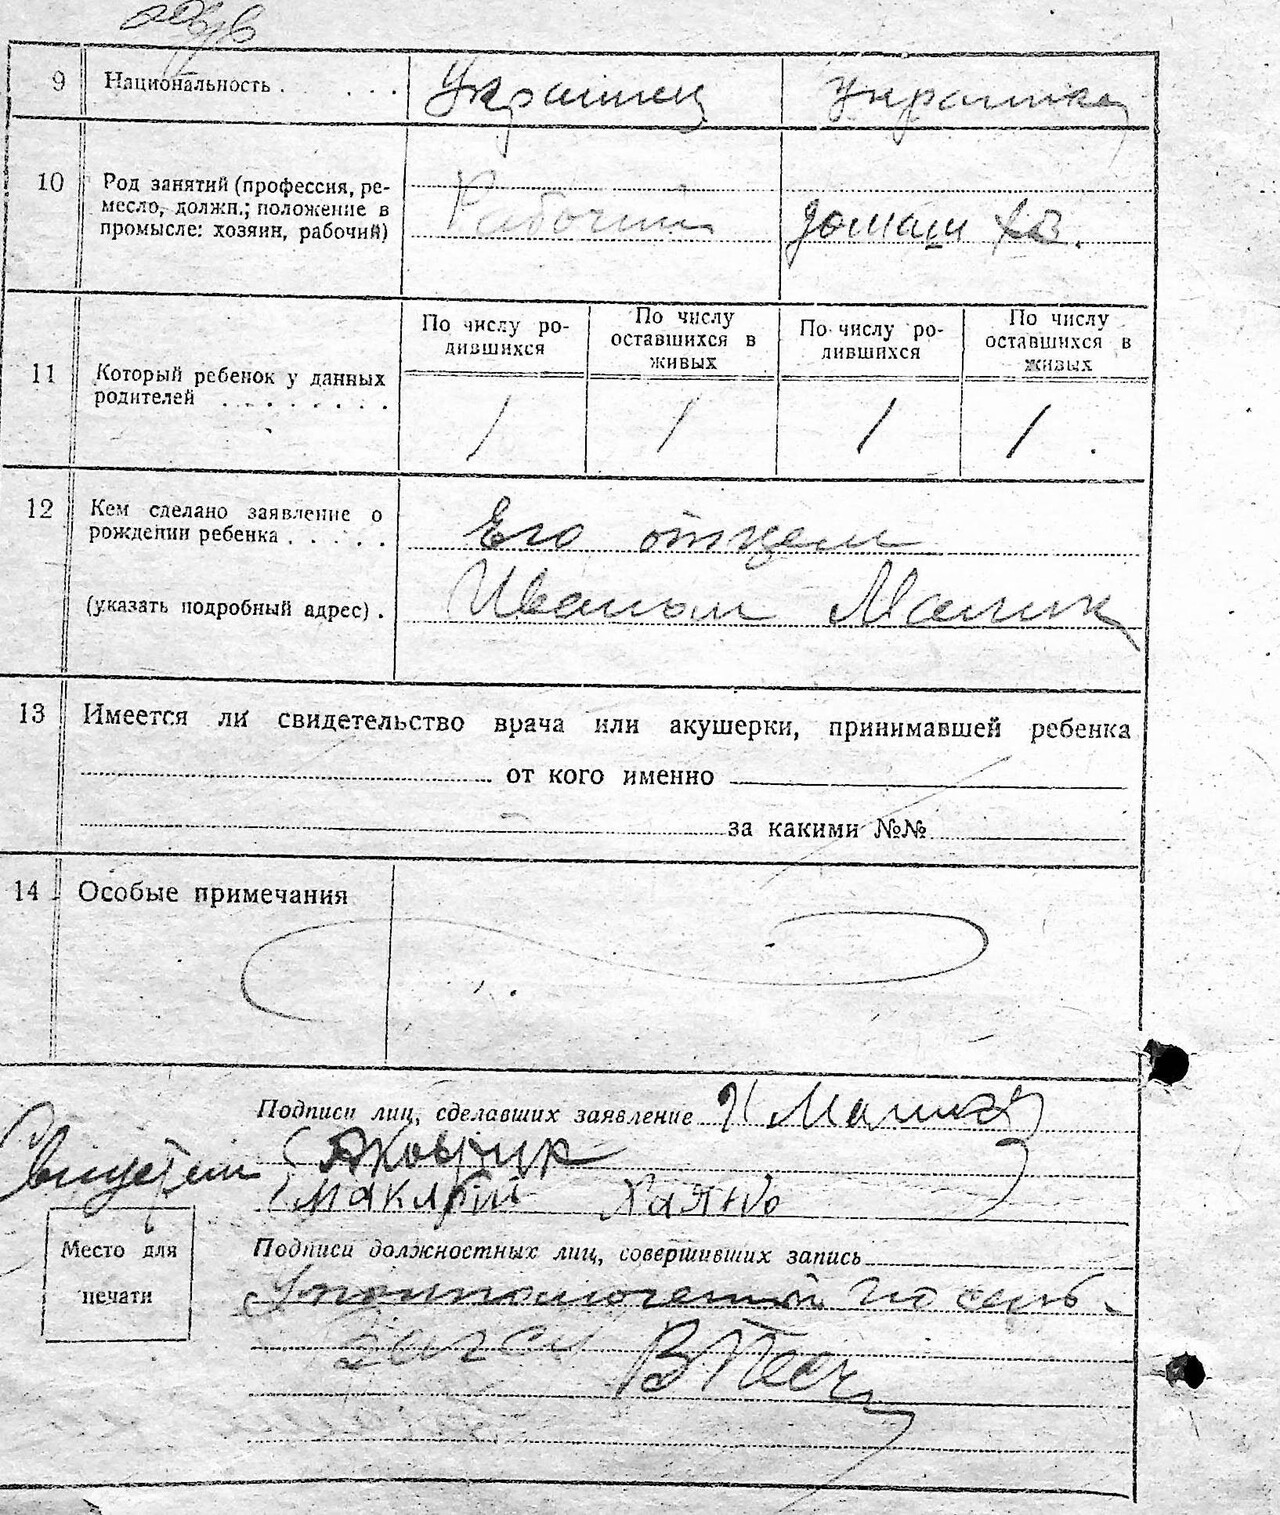 9 Национальность . . . . . Украинец Украинка
10 Род занятий (профессия, ре-
месло, должн.; положение в
промысле: хозяин, рабочий)
Рабочий домашн хоз.
По числу ро-
дившихся
По числу
оставшихся в
живых
По числу ро-
дившихся
По числу
оставшихся в
живых
11 Который ребенок у данных
родителей . . . . . . . .
1 1 1 1.
12 Кем сделано заявление о
рождении ребенка . . . . .
Его отцем
(указать подробный адрес) .
Иваном Малик
13 Имеется ли свидетельство врача или акушерки, принимавшей ребенка
от кого именно
за какими №№
14 Особые примечания
Подписи лиц, сделавших заявление И Малик
Свидетели
Макарий
Место для
печати
Подписи должностных лиц, совершивших запись
Уполномоченный по
Загса В